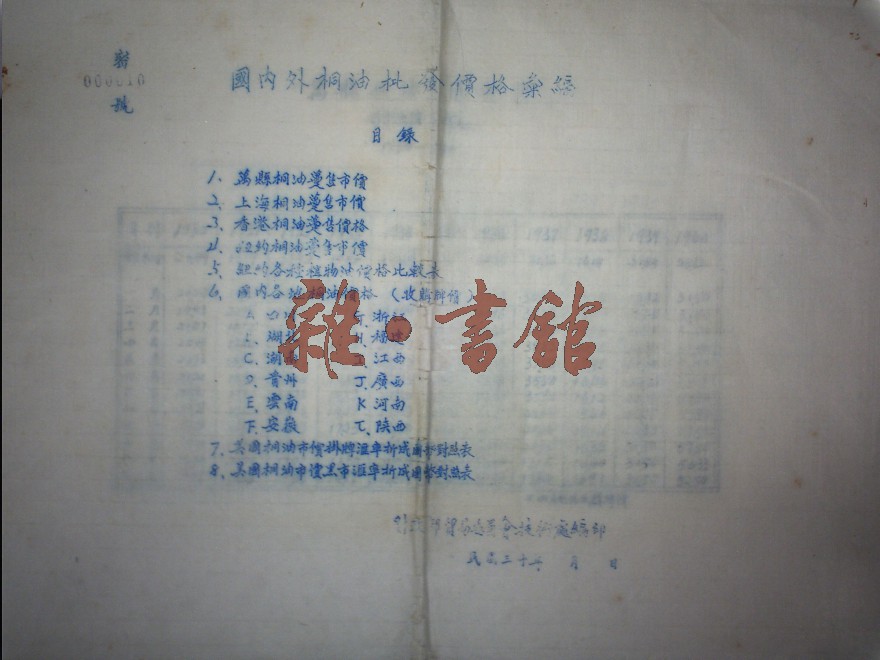 密
000010
號
國內外桐油批發價格彙編
目錄
1、萬縣桐油躉售市價
2、上海桐油躉售市價
3、香港桐油躉售價格
4、紐約桐油躉售市價
5、紐約各種植物油價格比較表
6、國內各地桐油價格（收購牌價）
A 四川 G、浙江
B、湖北 H、福建
C、湖南 I、江西
D、貴州 J、廣西
E、雲南 K 河南
F、安徽 L、陝西
7、美國桐油市價掛牌匯率折成國幣對照表
8、美國桐油市價黑市匯率折成國幣對照表
財政部貿易委員會技術處編印
民國三十年 月 日
雜·書館